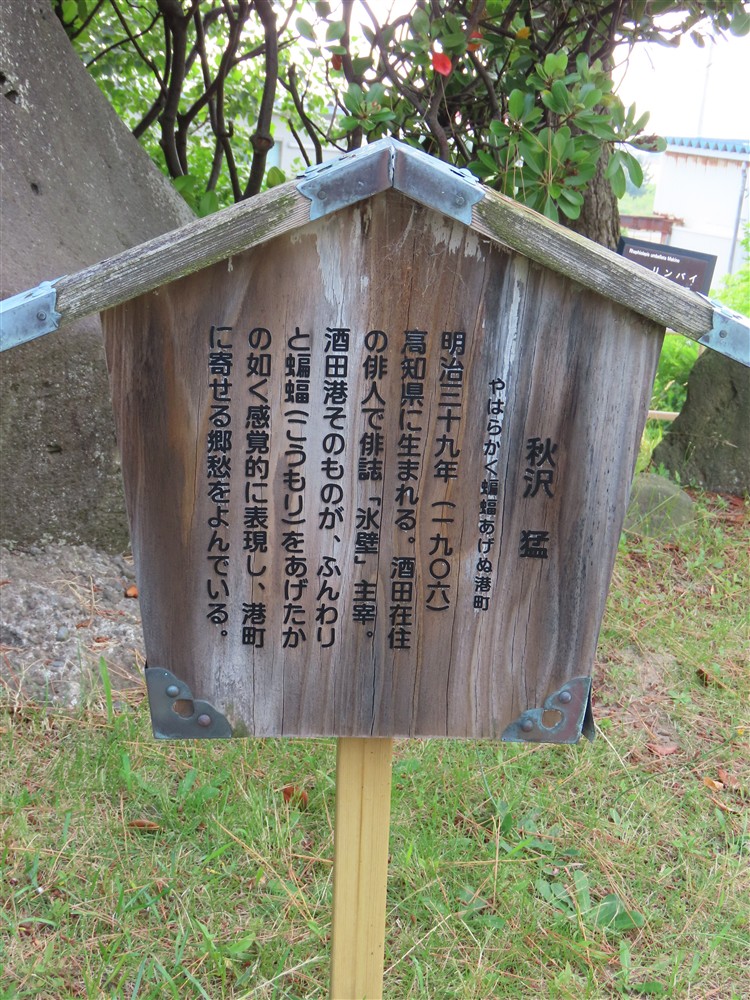 秋沢 猛
やはらかく蝙蝠あげぬ港町
明治三十九年(一九〇六)
高知県に生まれる。酒田在住
の俳人で俳誌「氷壁」主宰。
酒田港そのものが、ふんわり
と蝙蝠(こうもり)をあげたか
の如く感覚的に表現し、港町
に寄せる郷愁をよんでいる。
リンバイ